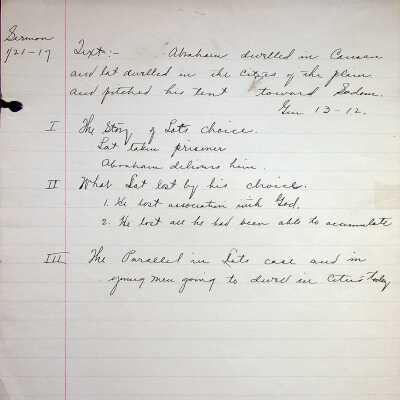 Sermon
1/21-17
Text:- Abraham dwelled in Canaan
and Lot dwelled in the cities of the plain
and pitched his tent toward Sodom.
Gen 13-12.
I The Story of Lots choice.
Lot taken prisoner
Abraham delivers him.
II What Lot lost by his choice.
1. He lost association with God.
2. He lost all he had been able to accumulate
III The Parallel in Lots case and in
young men going to dwell in Cities today